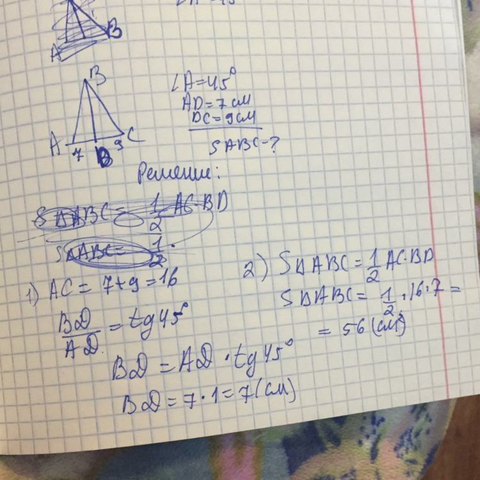 A B
B
A C
7 9
B
∠A=45°
AD=7см
DC=9см
SABC-?
Решение:
SΔABC = 1/2 AC·BD
SΔABC = 1/2 ·
1) AC = 7+9=16
BD/AD = tg45°
BD = AD · tg45°
BD = 7·1=7(см)
2) SΔABC = 1/2 AC·BD
SΔABC = 1/2 · 16 · 7 =
= 56 (см)